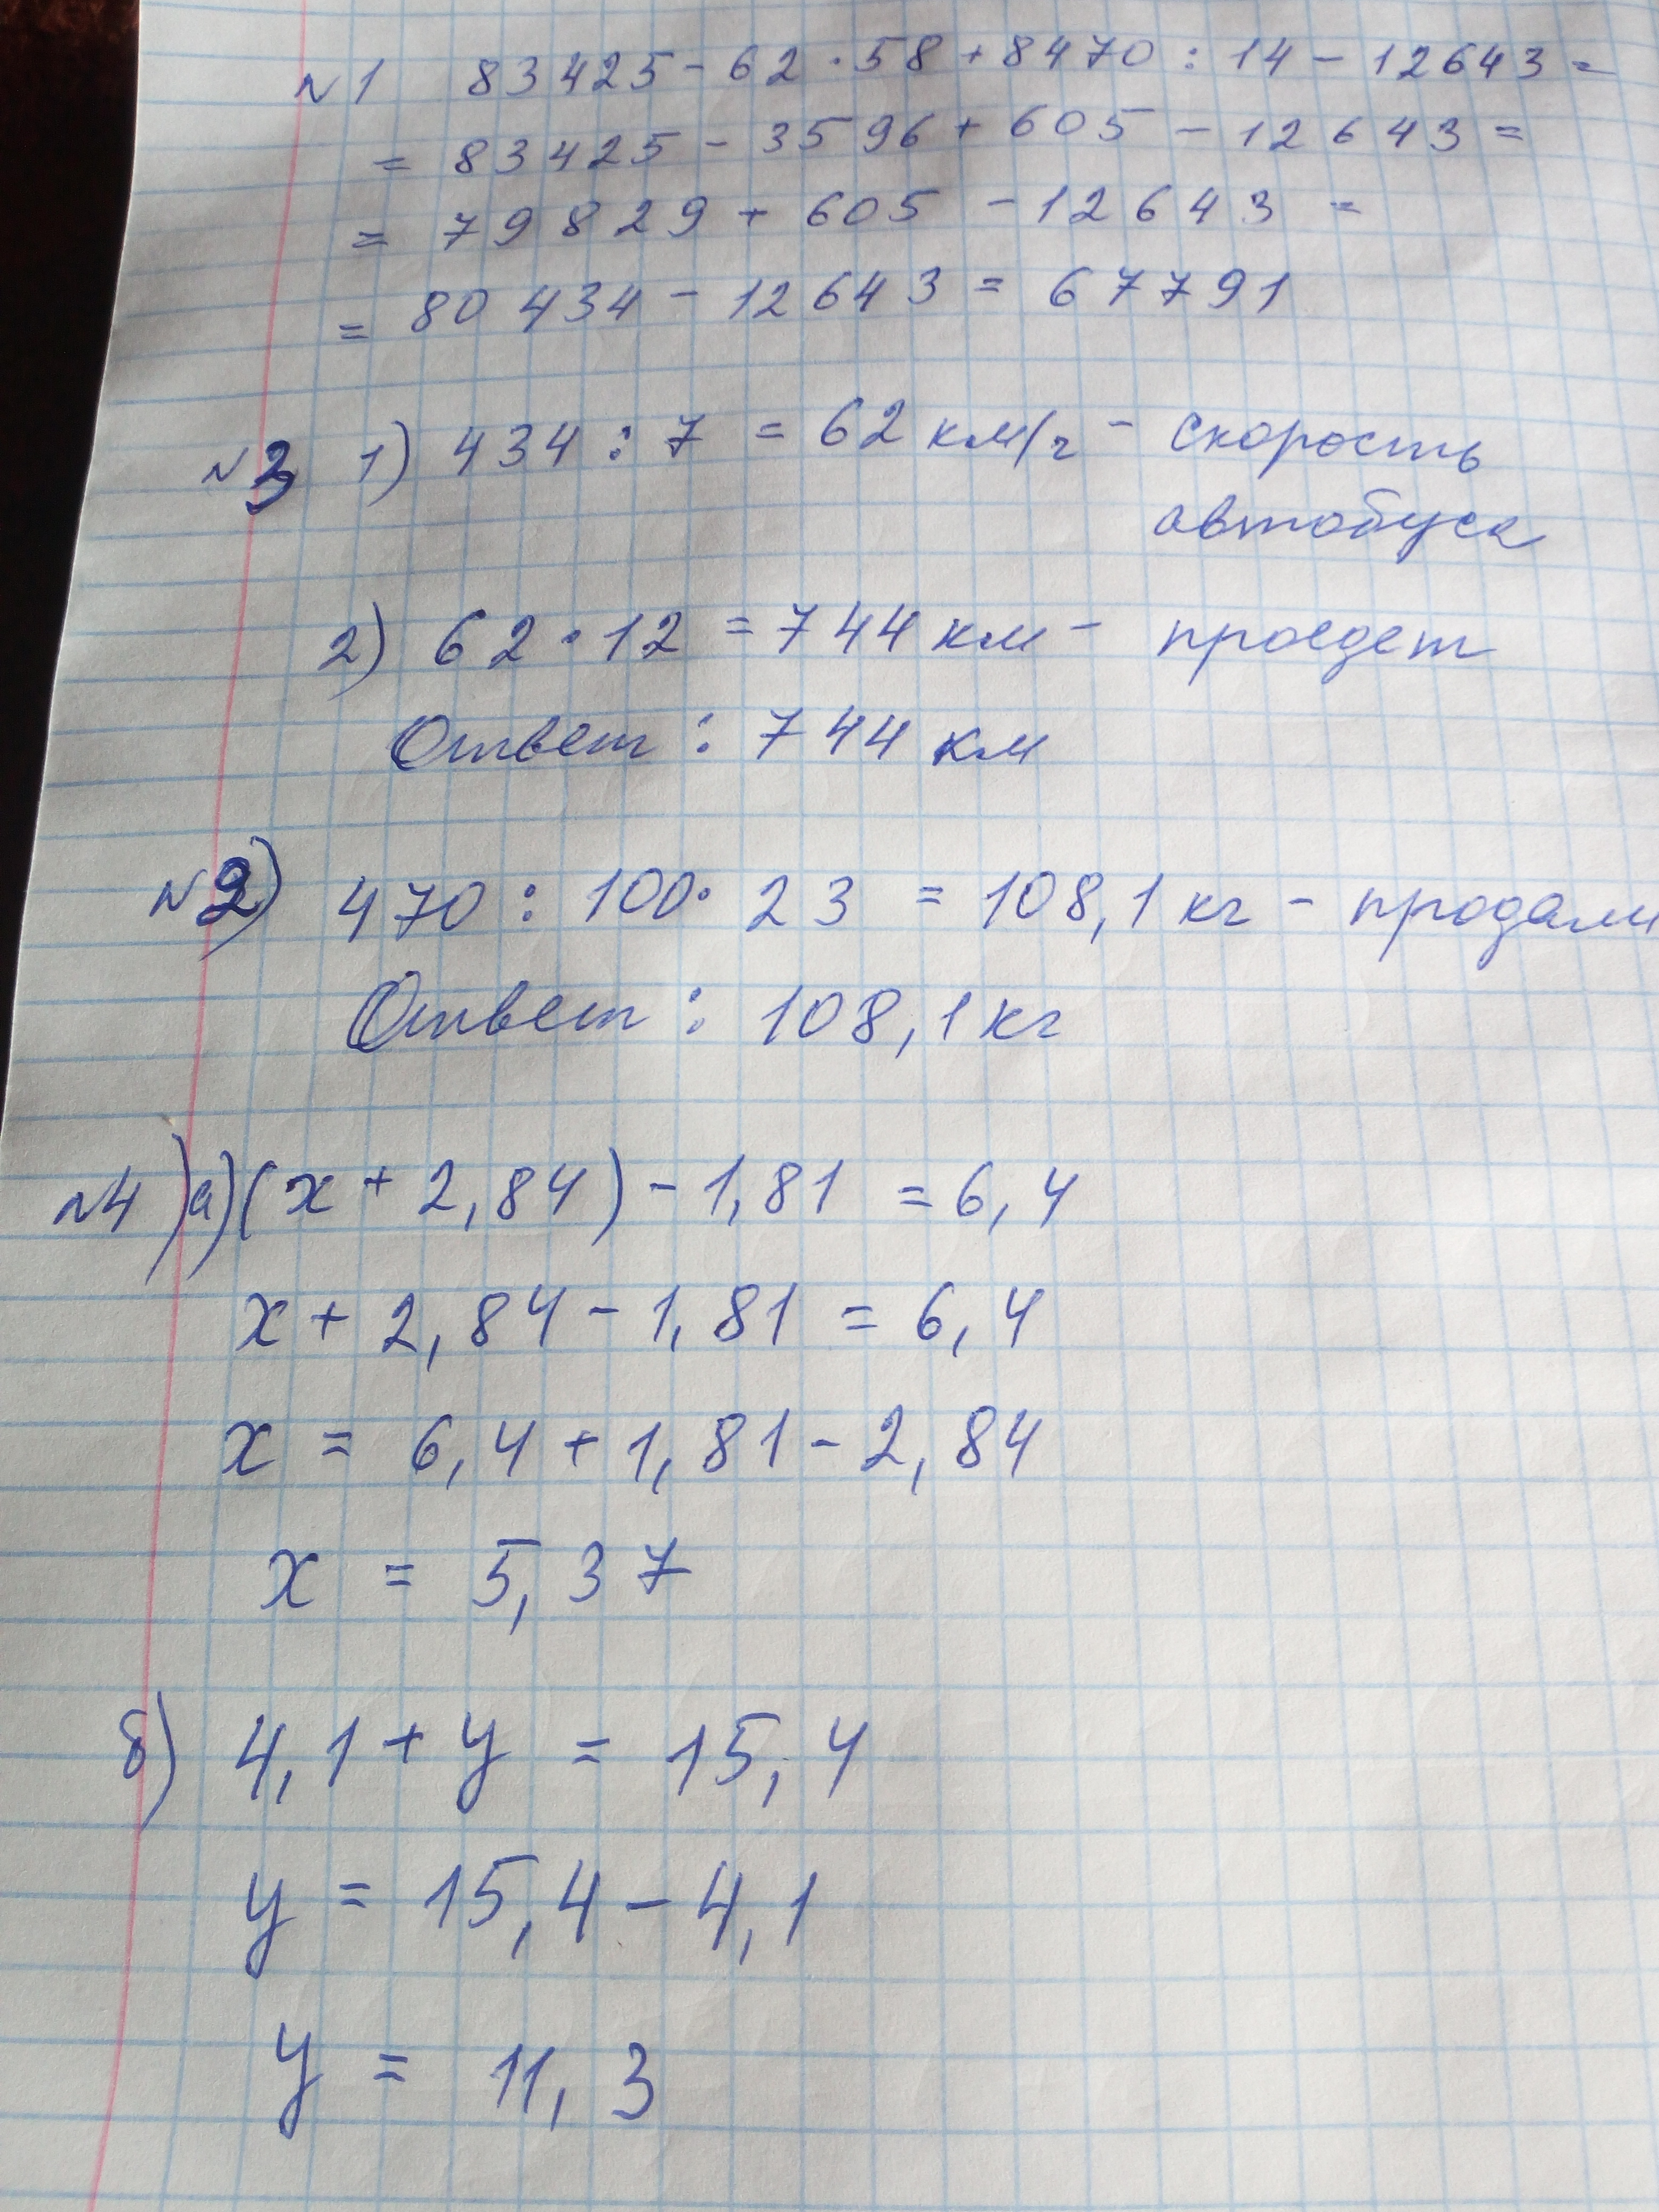 №1 83425 - 62 · 58 + 8470 : 14 - 12643 =
= 83425 - 3596 + 605 - 12643 =
= 79829 + 605 - 12643 =
= 80434 - 12643 = 67791
№3 1) 434 : 7 = 62 км/ч - скорость
автобуса
2) 62 · 12 = 744 км - проедет
Ответ : 744 км
№2) 470 : 100 · 23 = 108,1 кг - продали
Ответ : 108,1 кг
№4) а) (x + 2,84) - 1,81 = 6,4
x + 2,84 - 1,81 = 6,4
x = 6,4 + 1,81 - 2,84
x = 5,37
б) 4,1 + y = 15,4
y = 15,4 - 4,1
y = 11,3